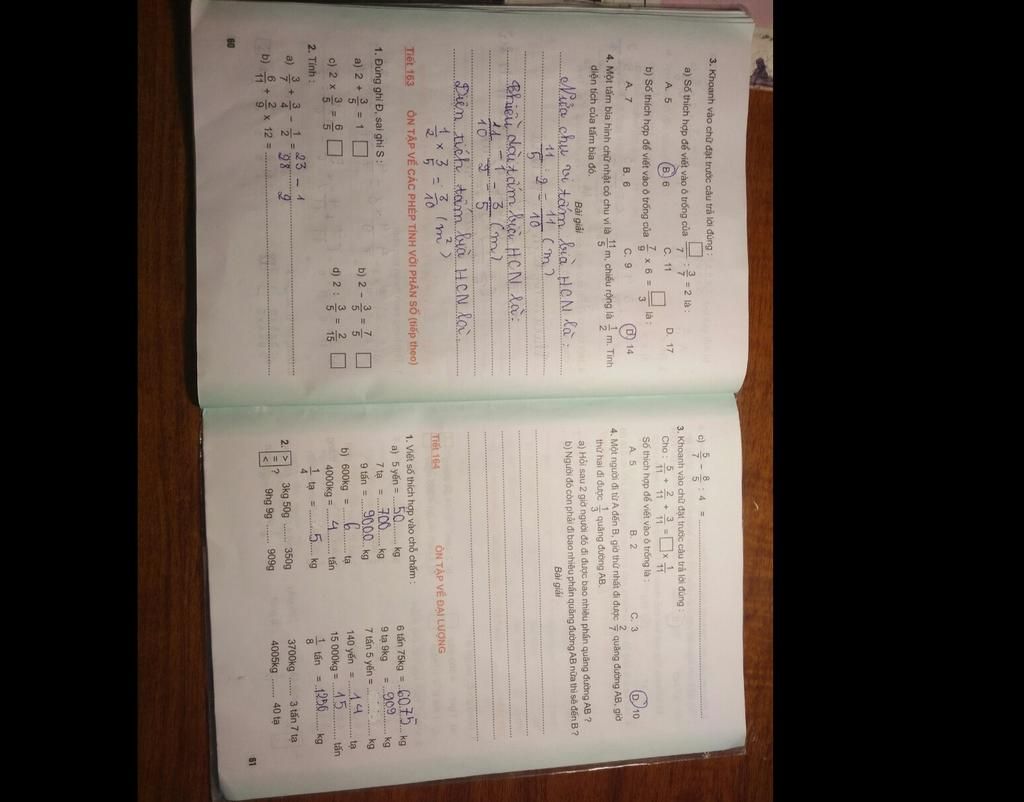 3. Khoanh vào chữ đặt trước câu trả lời đúng :
a) Số thích hợp để viết vào ô trống của □/7 : 3/7 = 2 là :
A. 5 B. 6 C. 11 D. 17
b) Số thích hợp để viết vào ô trống của 7/9 x 6 = □/3 là :
A. 7 B. 6 C. 9 D. 14
4. Một tấm bìa hình chữ nhật có chu vi là 11/5 m, chiều rộng là 1/2 m. Tính
diện tích của tấm bìa đó.
Bài giải
Nửa chu vi tấm bìa HCN là :
11/5 : 2 = 11/10 (m)
Chiều dài tấm bìa HCN là :
11/10 - 1/2 = 3/5 (m)
Diện tích tấm bìa HCN là :
1/2 x 3/5 = 3/10 (m²)
Tiết 163 ÔN TẬP VỀ CÁC PHÉP TÍNH VỚI PHÂN SỐ (tiếp theo)
1. Đúng ghi Đ, sai ghi S :
a) 2 + 3/5 = 1 □ b) 2 - 3/5 = 7/5 □
c) 2 x 3/5 = 6/5 □ d) 2 : 3/5 = 2/15 □
2. Tính :
a) 3/7 + 3/4 - 1/2 = 23/28 - 1/2
b) 6/11 + 2/9 x 12 =
60
c) 5/7 - 8/5 : 4 =
3. Khoanh vào chữ đặt trước câu trả lời đúng :
Cho : 5/11 + 2/11 + 3/11 = □ x 1/11
Số thích hợp để viết vào ô trống là :
A. 5 B. 2 C. 3 D. 10
4. Một người đi từ A đến B, giờ thứ nhất đi được 2/7 quãng đường AB, giờ
thứ hai đi được 1/3 quãng đường AB.
a) Hỏi sau 2 giờ người đó đi được bao nhiêu phần quãng đường AB ?
b) Người đó còn phải đi bao nhiêu phần quãng đường AB nữa thì sẽ đến B ?
Bài giải
Tiết 164 ÔN TẬP VỀ ĐẠI LƯỢNG
1. Viết số thích hợp vào chỗ chấm :
a) 5 yến = 50 kg 6 tấn 75kg = 6075 kg
7 tạ = 700 kg 9 tạ 9kg = 909 kg
9 tấn = 9000 kg 7 tấn 5 yến = ........ kg
b) 600kg = 6 tạ 140 yến = 14 tạ
4000kg = 4 tấn 15 000kg = 15 tấn
1/4 tạ = 5 kg 1/8 tấn = kg
2. > = < ? 3kg 50g ........ 350g 3700kg ........ 3 tấn 7 tạ
9hg 9g ........ 909g 4005kg ........ 40 tạ
61